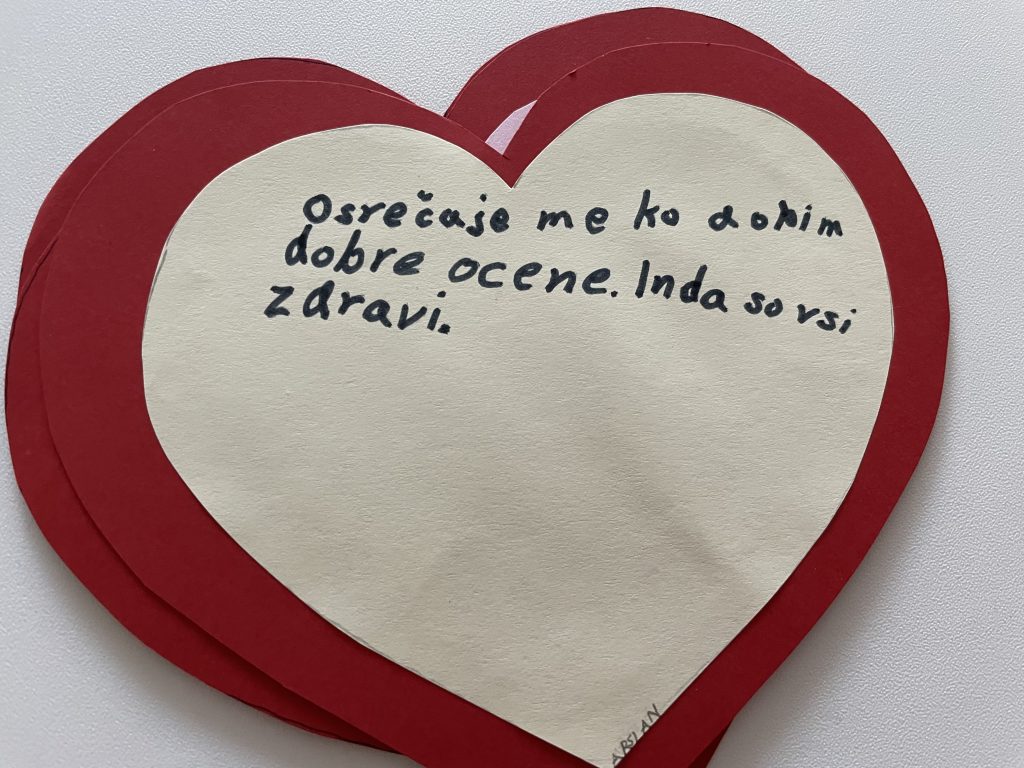 Osrečuje me ko dobim
dobre ocene. Inda so vsi
zdravi.
ARSLAN